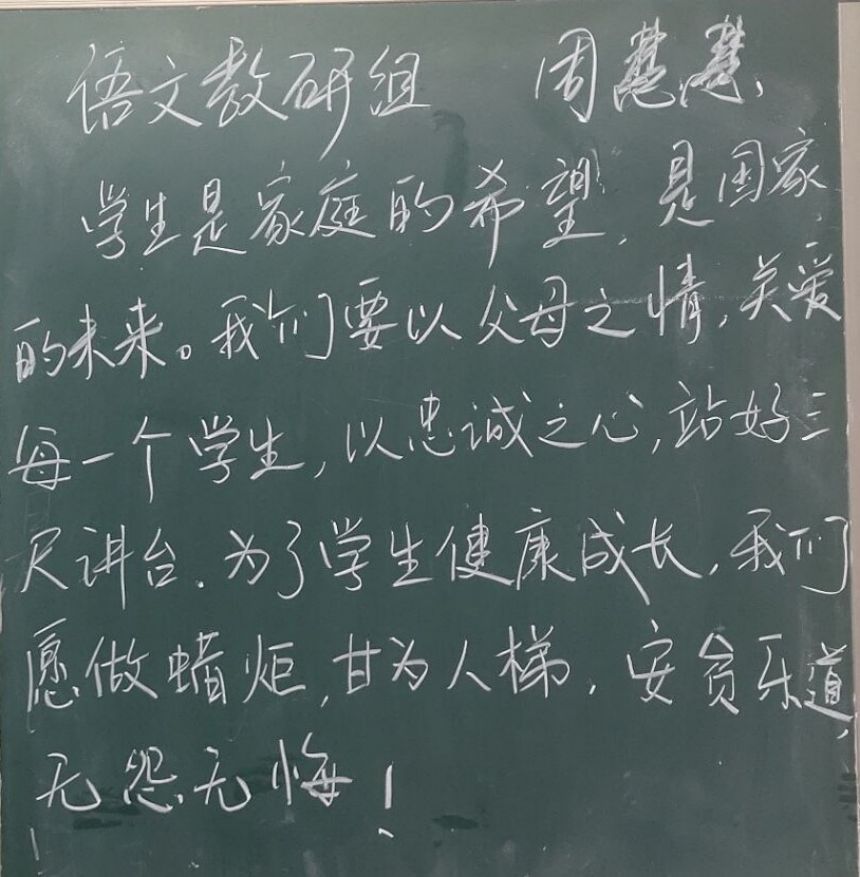 语文教研组 周慧慧
学生是家庭的希望,是国家
的未来。我们要以父母之情,关爱
每一个学生,以忠诚之心,站好三
尺讲台.为了学生健康成长,我们
愿做蜡炬,甘为人梯,安贫乐道,
无怨无悔!